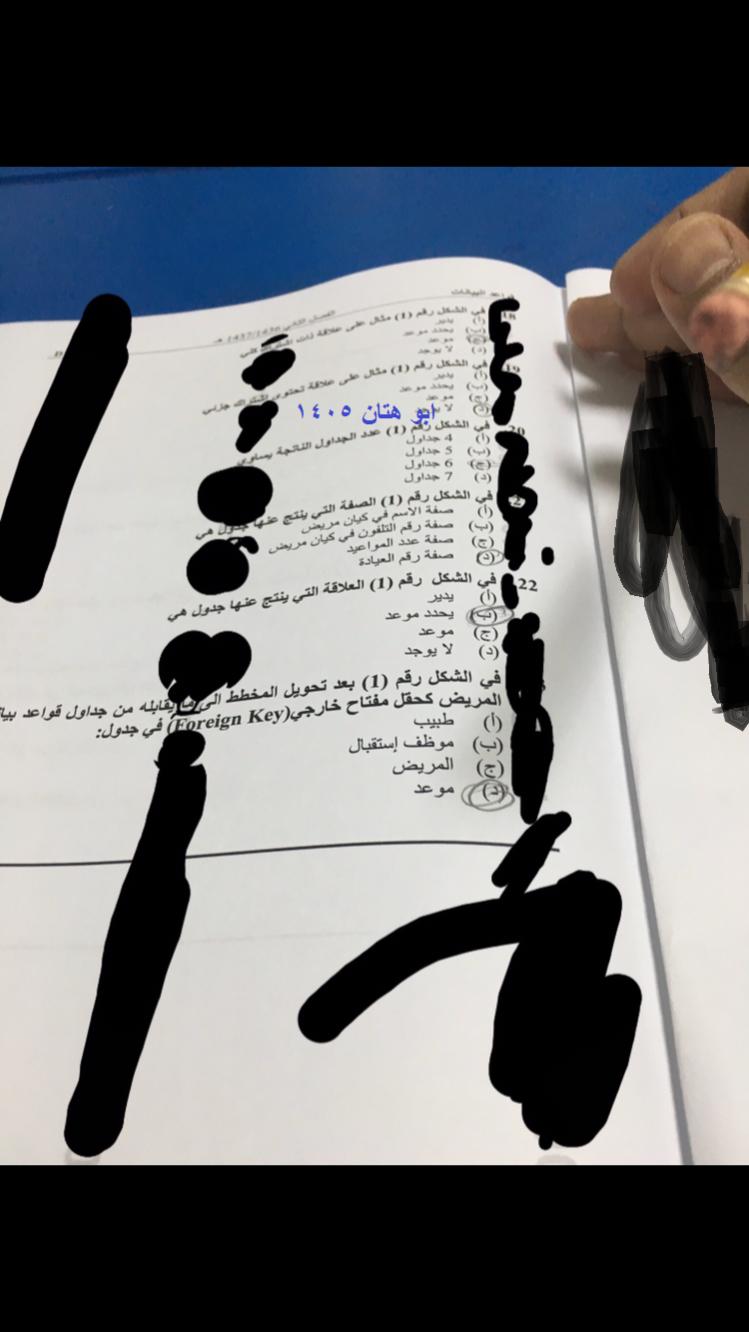 قواعد البيانات
الفصل الثاني 1437/1436 هـ
18
في الشكل رقم (1) مثال على علاقة ذات اشتراك كلي
(أ) يدير
(ب) يحدد موعد
(ج) موعد
(د) لا يوجد
19
في الشكل رقم (1) مثال على علاقة تحتوي اشتراك جزئي
(أ) يدير
(ب) يحدد موعد
(ج) موعد
(د) لا
ابو هتان ١٤٠٥
20
في الشكل رقم (1) عدد الجداول الناتجة يساوي
(أ) 4 جداول
(ب) 5 جداول
(ج) 6 جداول
(د) 7 جداول
في الشكل رقم (1) الصفة التي ينتج عنها جدول هي
(أ) صفة الاسم في كيان مريض
(ب) صفة رقم التلفون في كيان مريض
(ج) صفة عدد المواعيد
(د) صفة رقم العيادة
22
في الشكل رقم (1) العلاقة التي ينتج عنها جدول هي
(أ) يدير
(ب) يحدد موعد
(ج) موعد
(د) لا يوجد
في الشكل رقم (1) بعد تحويل المخطط الى ما يقابله من جداول قواعد
المريض كحقل مفتاح خارجي(Foreign Key) في جدول:
(أ) طبيب
(ب) موظف إستقبال
(ج) المريض
(د) موعد